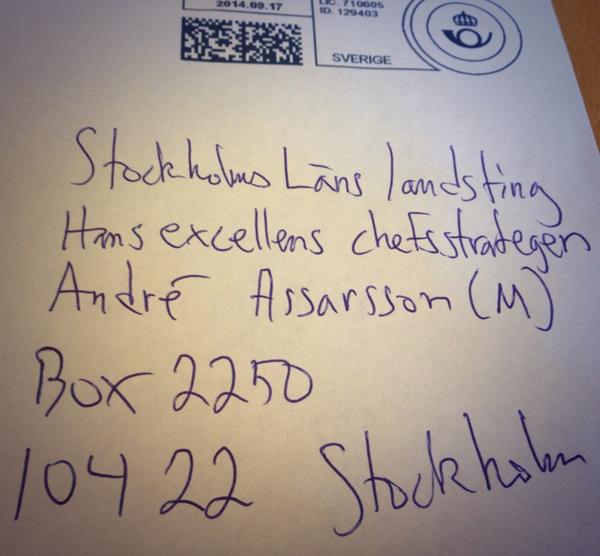 2014.09.17
LIC. 710605
ID. 129403
SVERIGE
Stockholms Läns landsting
Hans excellens chefsstrategen
André Assarsson (M)
Box 2250
104 22 Stockholm